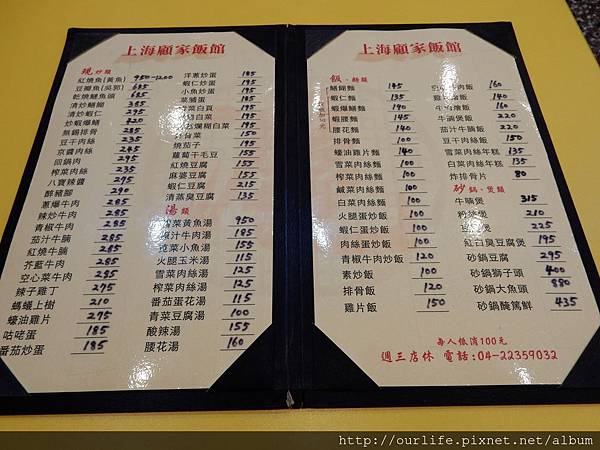 上海顧家飯館
燒 炒類
紅燒魚(黃魚) 950-1200
豆瓣魚(吳郭) 685
乾燒鰱魚頭 685
清炒鱔腳 385
清炒蝦仁 295
炒蝦爆鱔 420
無錫排骨 285
豆干肉絲 235
京醬肉絲 285
回鍋肉 295
榨菜肉絲 235
八寶辣醬 295
醉豬腳 290
蔥爆牛肉 285
辣炒牛肉 285
青椒牛肉 285
茄汁牛腩 285
紅燒牛肉 285
芥藍牛肉 285
空心菜牛肉 285
辣子雞丁 275
螞蟻上樹 210
蠔油雞片 275
咕咾蛋 185
番茄炒蛋 185
洋蔥炒蛋 185
蝦仁炒蛋 195
小魚炒蛋 195
菜脯蛋 185
白頁 195
白菜 195
爛糊白菜 195
菜 150
燒茄子 195
蘿蔔干毛豆 155
紅燒豆腐 155
麻婆豆腐 155
蝦仁豆腐 215
清蒸臭豆腐 135
湯 類
菜黃魚湯 950
牛肉湯 185
菜小魚湯 155
火腿玉米湯 115
雪菜肉絲湯 125
榨菜肉絲湯 125
番茄蛋花湯 115
青菜豆腐湯 100
酸辣湯 155
腰花湯 160
上海顧家飯館
飯、麵類
鱔餬麵 145
蝦仁麵 135
蝦爆鱔麵 140
蝦腰麵 145
腰花麵 140
排骨麵 100
蠔油雞片麵 140
雪菜肉絲麵 100
榨菜肉絲麵 100
鹹菜肉絲麵 100
白菜肉絲麵 100
火腿蛋炒飯 100
蝦仁蛋炒飯 100
肉絲蛋炒飯 100
青椒牛肉炒飯 120
素炒飯 100
排骨飯 120
雞片飯 150
牛肉飯 160
飯 140
飯 160
牛腩煲飯 220
茄汁牛腩飯 220
豆干肉絲飯 150
雪菜肉絲年糕 135
白菜肉絲年糕 135
炸排骨片 80
砂 鍋、煲類
牛腩煲 315
煲 210
煲 225
紅白臭豆腐煲 195
砂鍋豆腐 295
砂鍋獅子頭 400
砂鍋大魚頭 880
砂鍋醃篤鮮 435
每人低消100元
週三店休 電話:04-22359032
http://ourlife.pixnet.net/album